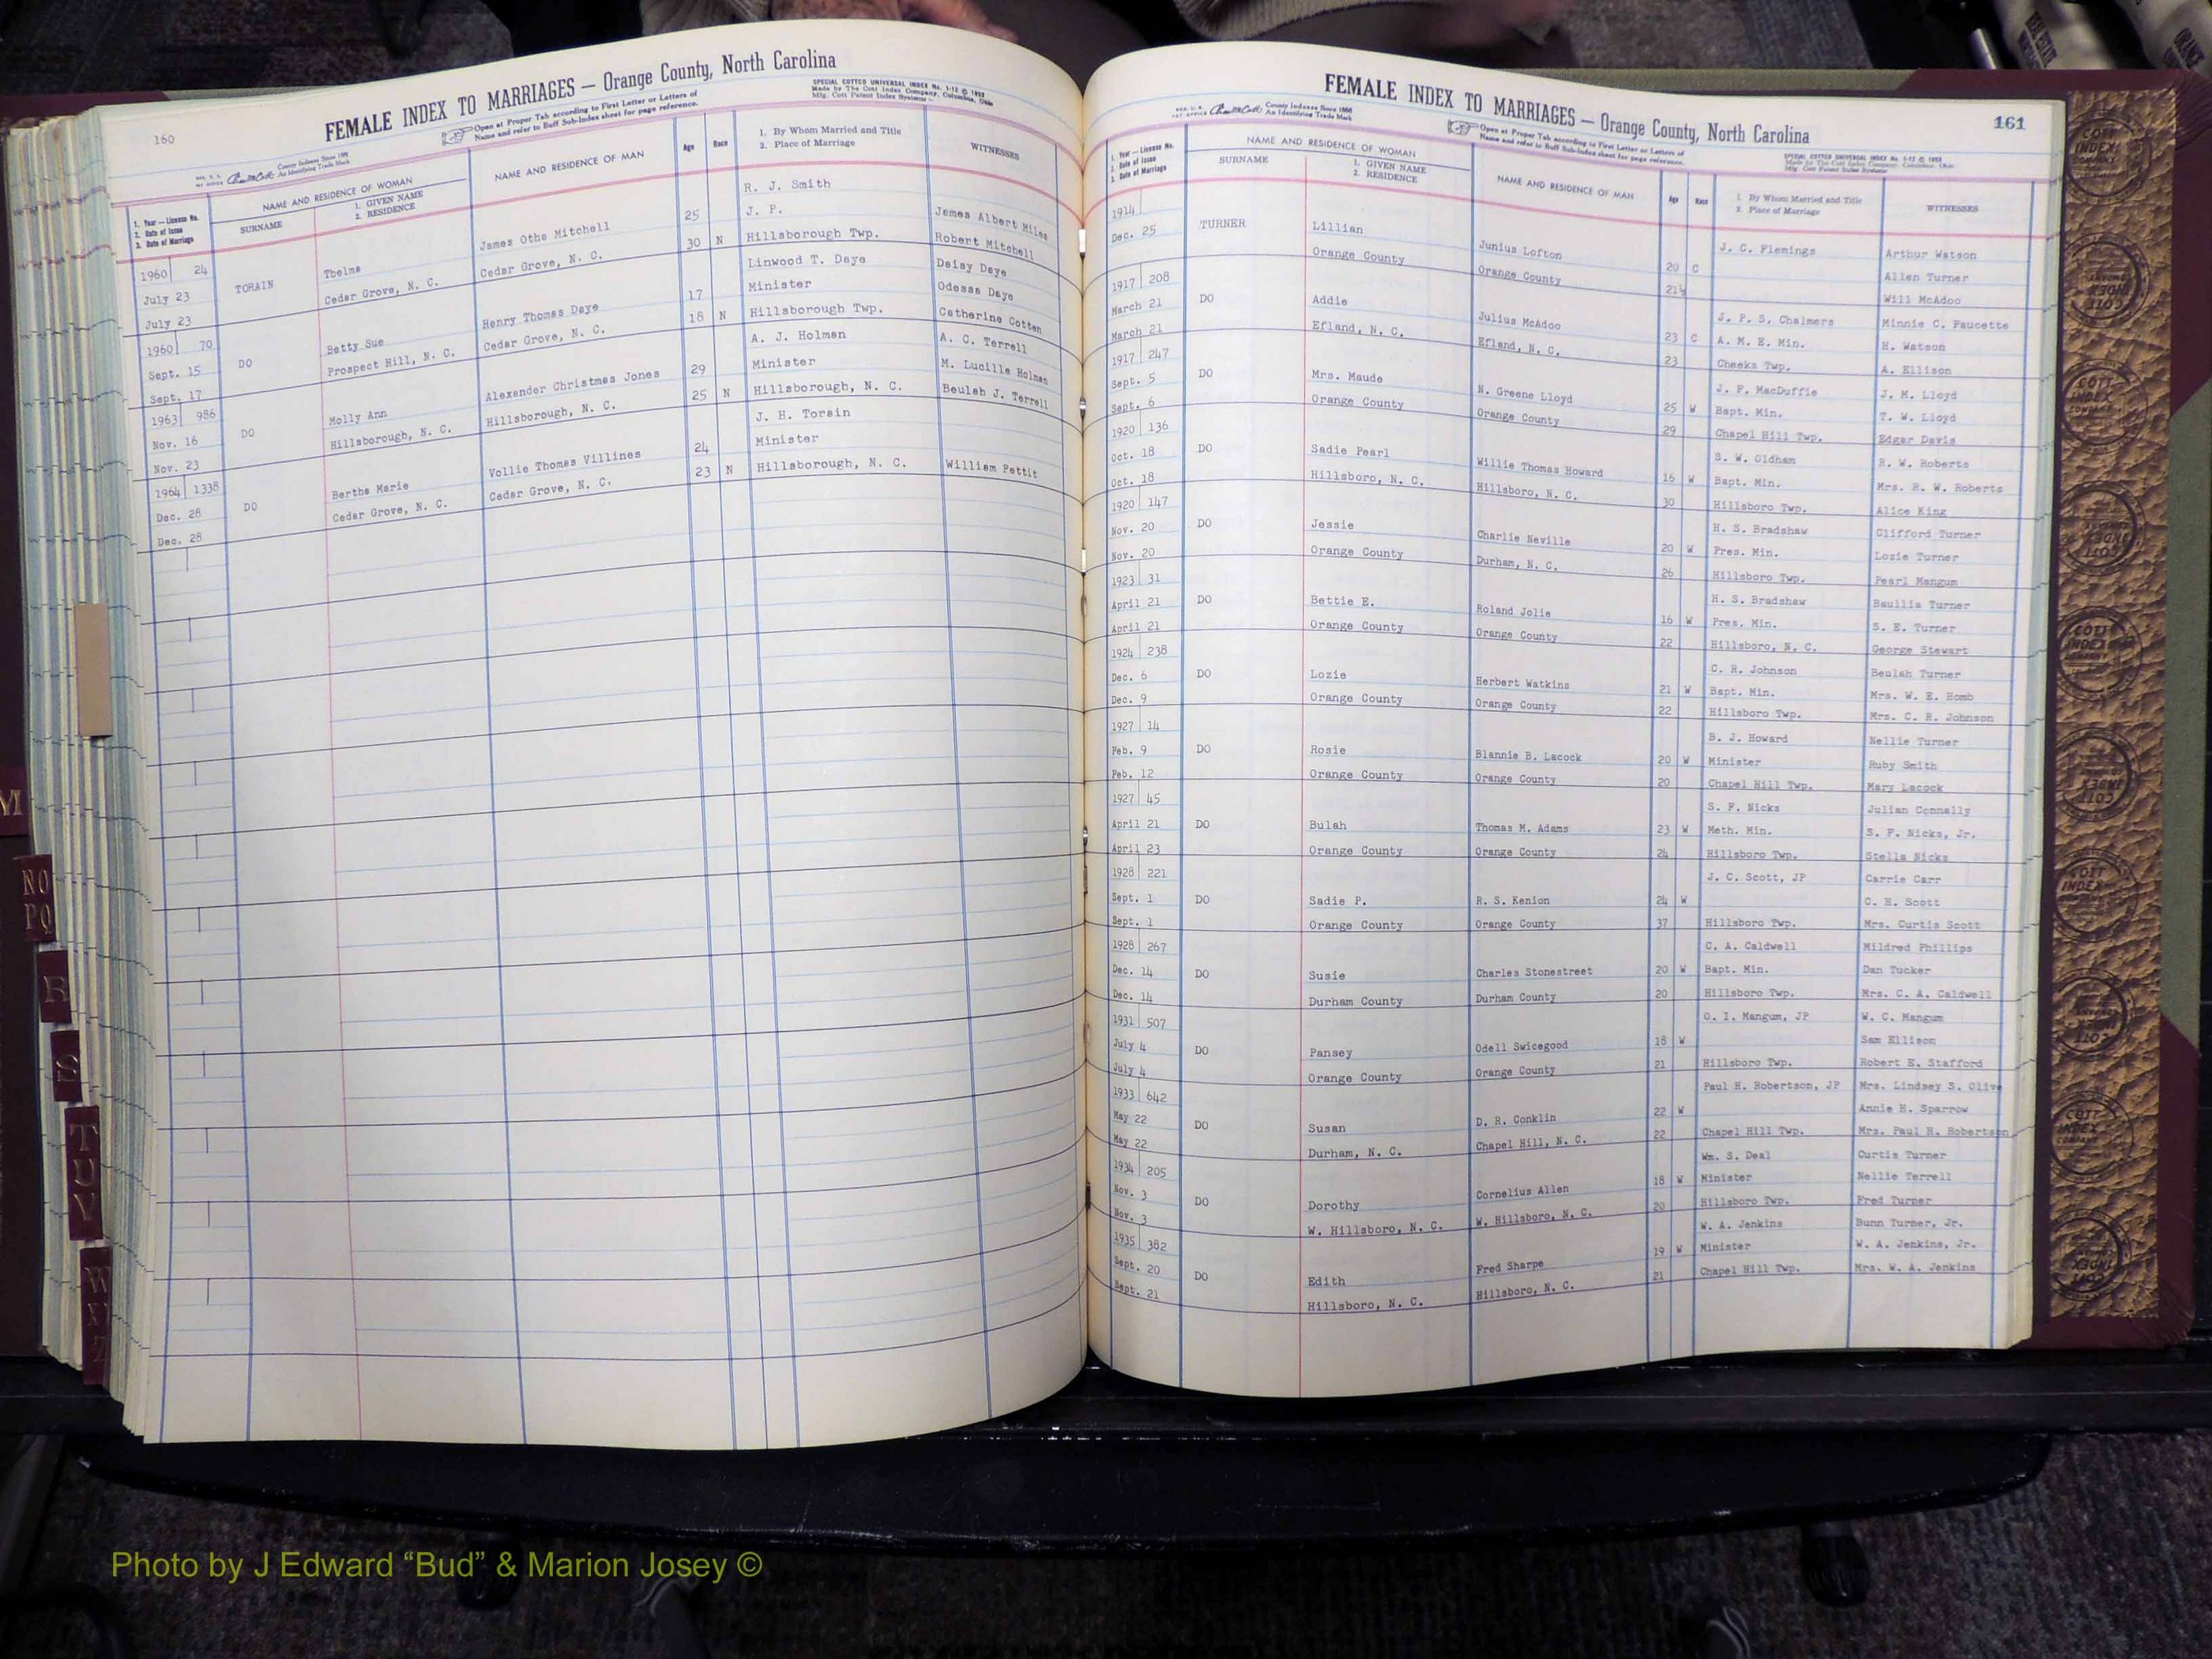 160
FEMALE INDEX TO MARRIAGES — Orange County, North Carolina
SPECIAL COTTCO UNIVERSAL INDEX No. 1-12 © 1953
Made by The Cott Index Company, Columbus, Ohio
Mfg. Cott Patent Index Systems
Open at Proper Tab according to First Letter or Letters of
Name and refer to Buff Sub-Index sheet for page reference.
County Indexes Since 1888
An Identifying Trade Mark
1. Year — License No.
2. Date of Issue
3. Date of Marriage
NAME AND RESIDENCE OF WOMAN
SURNAME
1. GIVEN NAME
2. RESIDENCE
NAME AND RESIDENCE OF MAN
Age
Race
1. By Whom Married and Title
2. Place of Marriage
WITNESSES
1960 24 R. J. Smith
July 23 TORAIN Thelma James Otha Mitchell 25 J. P. James Albert Miles
July 23 Cedar Grove, N. C. Cedar Grove, N. C. 30 N Hillsborough Twp. Robert Mitchell
1960 70 Linwood T. Daye Daisy Daye
Sept. 15 DO Betty Sue Henry Thomas Daye 17 Minister Odessa Daye
Sept. 17 Prospect Hill, N. C. Cedar Grove, N. C. 18 N Hillsborough Twp. Catherine Cotten
1963 986 A. J. Holman A. C. Terrell
Nov. 16 DO Molly Ann Alexander Christmas Jones 29 Minister M. Lucille Holman
Nov. 23 Hillsborough, N. C. Hillsborough, N. C. 25 N Hillsborough, N. C. Beulah J. Terrell
1964 1338 J. H. Torain
Dec. 28 DO Bertha Marie Vollie Thomas Villines 24 Minister
Dec. 28 Cedar Grove, N. C. Cedar Grove, N. C. 23 N Hillsborough, N. C. William Pettit
161
FEMALE INDEX TO MARRIAGES — Orange County, North Carolina
County Indexes Since 1888
An Identifying Trade Mark
Open at Proper Tab according to First Letter or Letters of
Name and refer to Buff Sub-Index sheet for page reference.
SPECIAL COTTCO UNIVERSAL INDEX No. 1-12 © 1953
Made by The Cott Index Company, Columbus, Ohio
Mfg. Cott Patent Index Systems
1. Year — License No.
2. Date of Issue
3. Date of Marriage
NAME AND RESIDENCE OF WOMAN
SURNAME
1. GIVEN NAME
2. RESIDENCE
NAME AND RESIDENCE OF MAN
Age
Race
1. By Whom Married and Title
2. Place of Marriage
WITNESSES
1914 J. C. Flemings Arthur Watson
Dec. 25 TURNER Lillian Junius Lofton 20 C Allen Turner
Orange County Orange County 21½ Will McAdoo
1917 208 J. P. S. Chalmers Minnie C. Faucette
March 21 DO Addie Julius McAdoo 23 C A. M. E. Min. H. Watson
March 21 Efland, N. C. Efland, N. C. 23 Cheeks Twp. A. Ellison
1917 247 J. F. MacDuffie J. M. Lloyd
Sept. 5 DO Mrs. Maude N. Greene Lloyd 25 W Bapt. Min. T. W. Lloyd
Sept. 6 Orange County Orange County 29 Chapel Hill Twp. Edgar Davis
1920 136 S. W. Oldham R. W. Roberts
Oct. 18 DO Sadie Pearl Willie Thomas Howard 16 W Bapt. Min. Mrs. R. W. Roberts
Oct. 18 Hillsboro, N. C. Hillsboro, N. C. 30 Hillsboro Twp. Alice King
1920 147 H. S. Bradshaw Clifford Turner
Nov. 20 DO Jessie Charlie Neville 20 W Pres. Min. Lozie Turner
Nov. 20 Orange County Durham, N. C. 26 Hillsboro Twp. Pearl Mangum
1923 31 H. S. Bradshaw Baullis Turner
April 21 DO Bettie E. Roland Jolie 16 W Pres. Min. S. E. Turner
April 21 Orange County Orange County 22 Hillsboro, N. C. George Stewart
1924 238 C. R. Johnson Beulah Turner
Dec. 6 DO Lozie Herbert Watkins 21 W Bapt. Min. Mrs. W. E. Homb
Dec. 9 Orange County Orange County 22 Hillsboro Twp. Mrs. C. R. Johnson
1927 14 B. J. Howard Nellie Turner
Feb. 9 DO Rosie Blannie B. Lacock 20 W Minister Ruby Smith
Feb. 12 Orange County Orange County 20 Chapel Hill Twp. Mary Lacock
1927 45 S. F. Nicks Julian Connally
April 21 DO Bulah Thomas M. Adams 23 W Meth. Min. S. F. Nicks, Jr.
April 23 Orange County Orange County 24 Hillsboro Twp. Stella Nicks
1928 221 J. C. Scott, JP Carrie Carr
Sept. 1 DO Sadie P. R. S. Kenion 24 W C. H. Scott
Sept. 1 Orange County Orange County 37 Hillsboro Twp. Mrs. Curtis Scott
1928 267 C. A. Caldwell Mildred Phillips
Dec. 14 DO Susie Charles Stonestreet 20 W Bapt. Min. Dan Tucker
Dec. 14 Durham County Durham County 20 Hillsboro Twp. Mrs. C. A. Caldwell
1931 507 O. I. Mangum, JP W. C. Mangum
July 4 DO Pansey Odell Swicegood 18 W Sam Ellison
July 4 Orange County Orange County 21 Hillsboro Twp. Robert E. Stafford
1933 642 Paul H. Robertson, JP Mrs. Lindsey S. Olive
May 22 DO Susan D. R. Conklin 22 W Annie H. Sparrow
May 22 Durham, N. C. Chapel Hill, N. C. 22 Chapel Hill Twp. Mrs. Paul H. Robertson
1934 205 Wm. S. Deal Curtis Turner
Nov. 3 DO Dorothy Cornelius Allen 18 W Minister Nellie Terrell
Nov. 3 W. Hillsboro, N. C. W. Hillsboro, N. C. 20 Hillsboro Twp. Fred Turner
1935 382 W. A. Jenkins Bunn Turner, Jr.
Sept. 20 DO Edith Fred Sharpe 19 W Minister W. A. Jenkins, Jr.
Sept. 21 Hillsboro, N. C. Hillsboro, N. C. 21 Chapel Hill Twp. Mrs. W. A. Jenkins
M
NO
PQ
R
S
T
U
V
W
Z
COTT
INDEX
COMPANY
Photo by J Edward “Bud” & Marion Josey ©